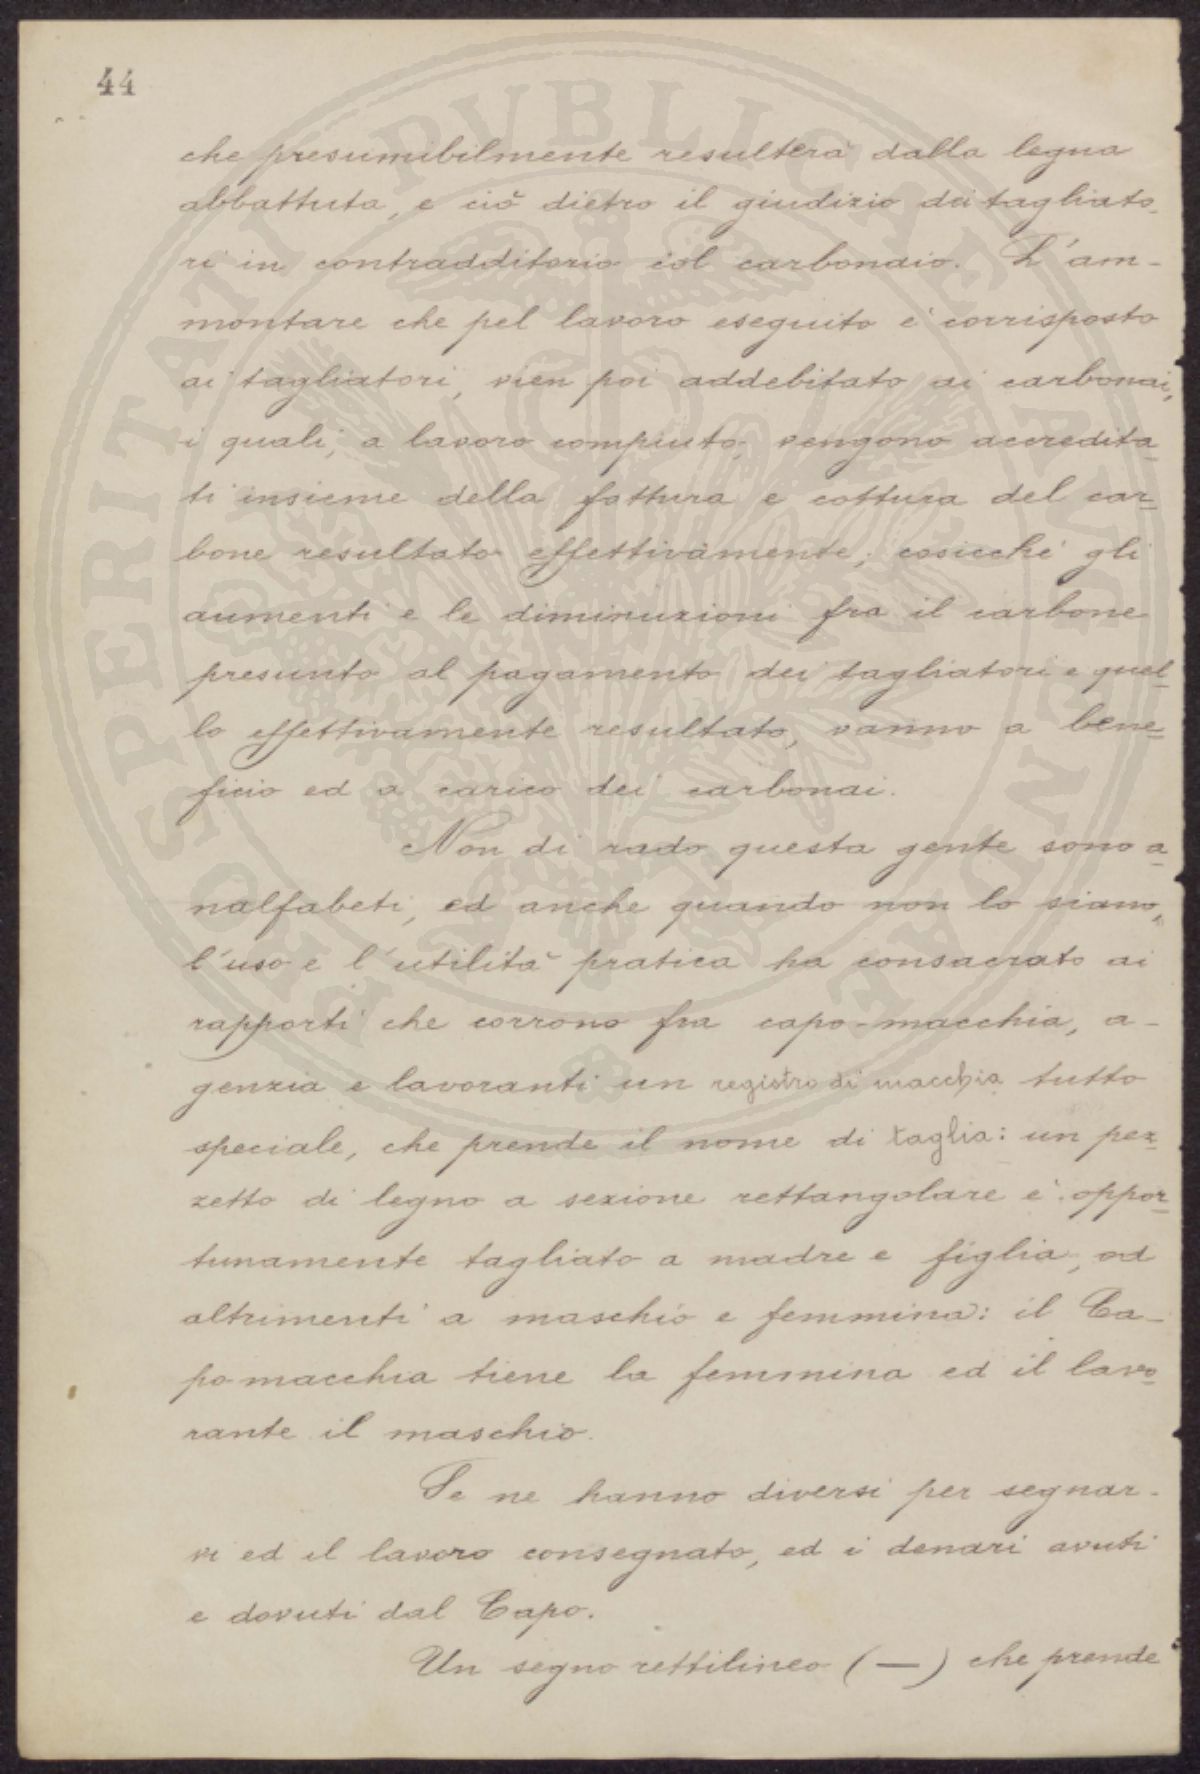 44
che presumibilmente resulterà dalla legna
abbattuta, e ciò dietro il giudizio dei tagliato-
ri in contradditorio col carbonaio. L'am-
montare che pel lavoro eseguito è corrisposto
ai tagliatori, vien poi addebitato ai carbonai,
i quali, a lavoro compiuto, vengono accredita-
ti insieme della fattura e cottura del car-
bone resultato effettivamente; cosicchè gli
aumenti e le diminuzioni fra il carbone
presunto al pagamento dei tagliatori e quel-
lo effettivamente resultato, vanno a bene-
ficio ed a carico dei carbonai.
Non di rado questa gente sono a-
nalfabeti, ed anche quando non lo siano,
l'uso e l'utilità pratica ha consacrato ai
rapporti che corrono fra capo-macchia, a-
genzia e lavoranti un registro di macchia tutto
speciale, che prende il nome di taglia: un pez-
zetto di legno a sezione rettangolare è oppor-
tunamente tagliato a madre e figlia, od
altrimenti a maschio e femmina: il Ca-
po-macchia tiene la femmina ed il lavo-
rante il maschio.
Se ne hanno diversi per segnar-
vi ed il lavoro consegnato, ed i denari avuti
e dovuti dal Capo.
Un segno rettilineo (—) che prende
PROSPERITATI PUBLICAE AUGENDAE